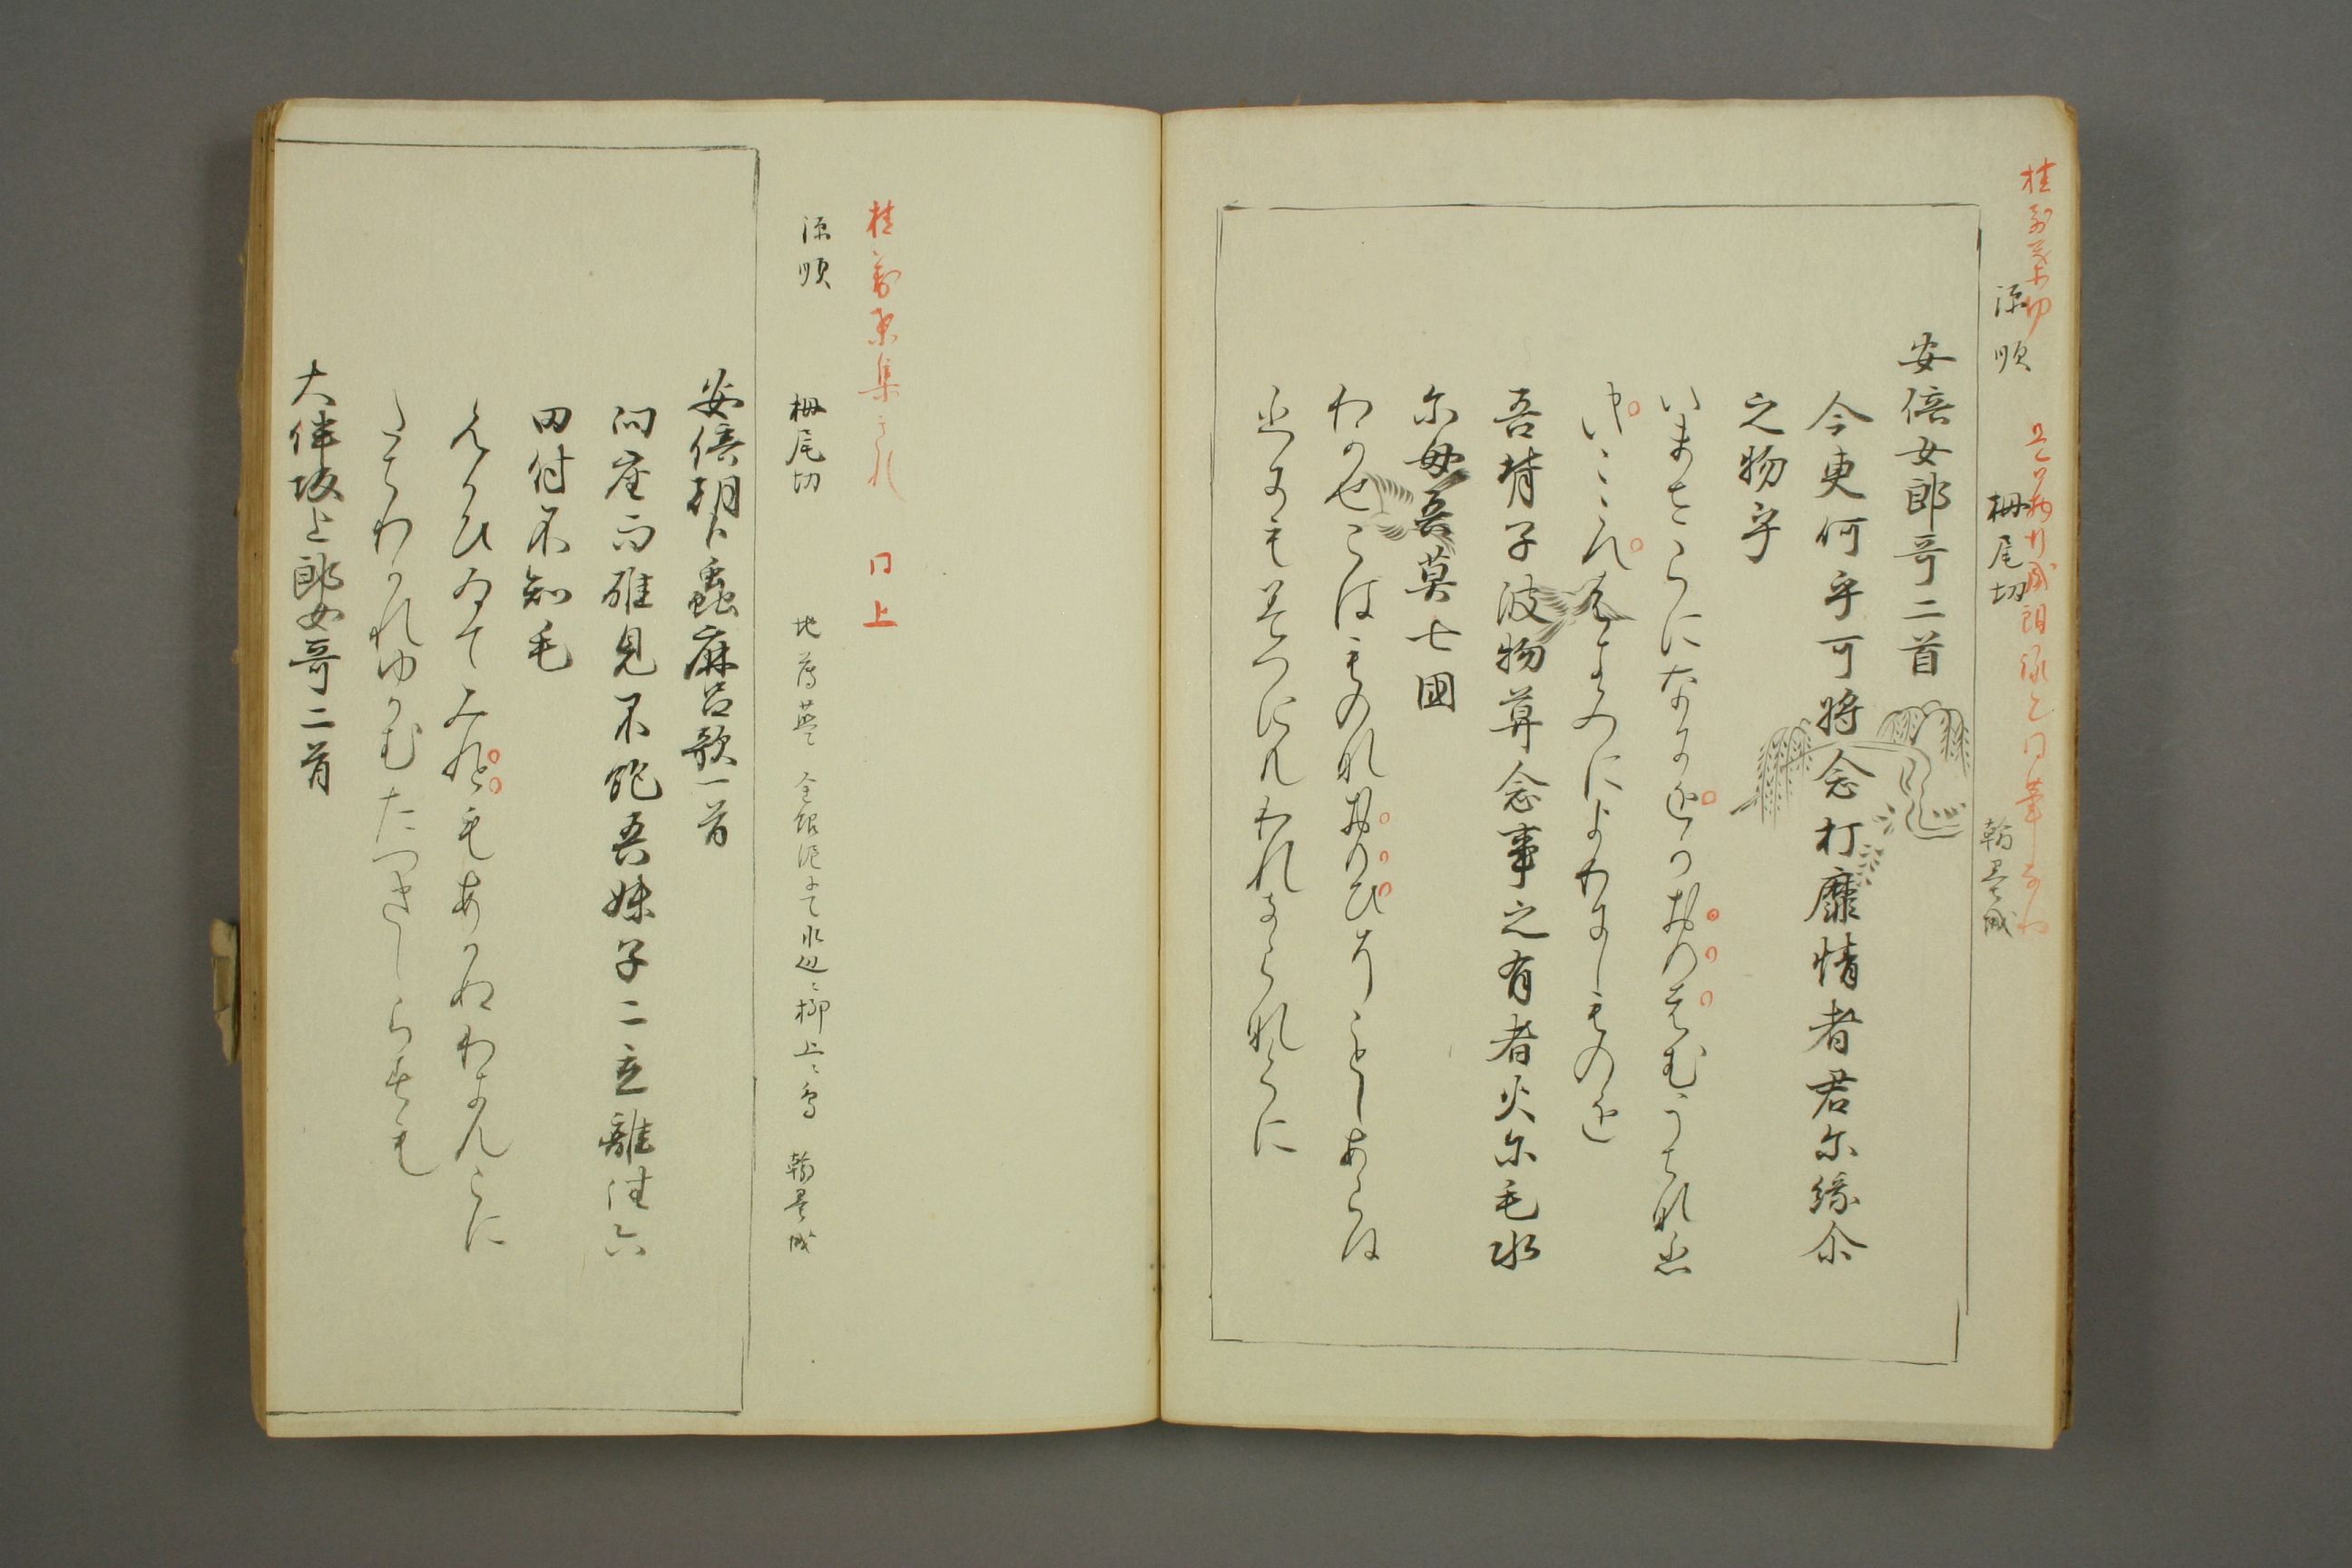 源順 栂尾切 翰墨城
安倍女郎哥二首
今更何乎可将念打靡情者君尓縁尓
之物乎
いまさらになにをかおもはむうちなひ
きこゝろはきみによりにしものを
吾背子波物莫念事之有者火尓毛水
尓毋吾莫七國
わかせこはものなおもひそことしあらは
ひにもみつにもわれならなくに
桂萬葉集きれ 同上
源順 栂尾切 地薄藍 金銀泥にて水辺ニ柳上ニ鳥 翰墨城
安倍朝臣蟲麻呂歌一首
向座而雖見不飽吾妹子二立離往六
田付不知毛
むかひゐてみれとも​あかぬわきもこに
たちわかれゆかむたつきしらすも
大伴坂上郎女哥二首